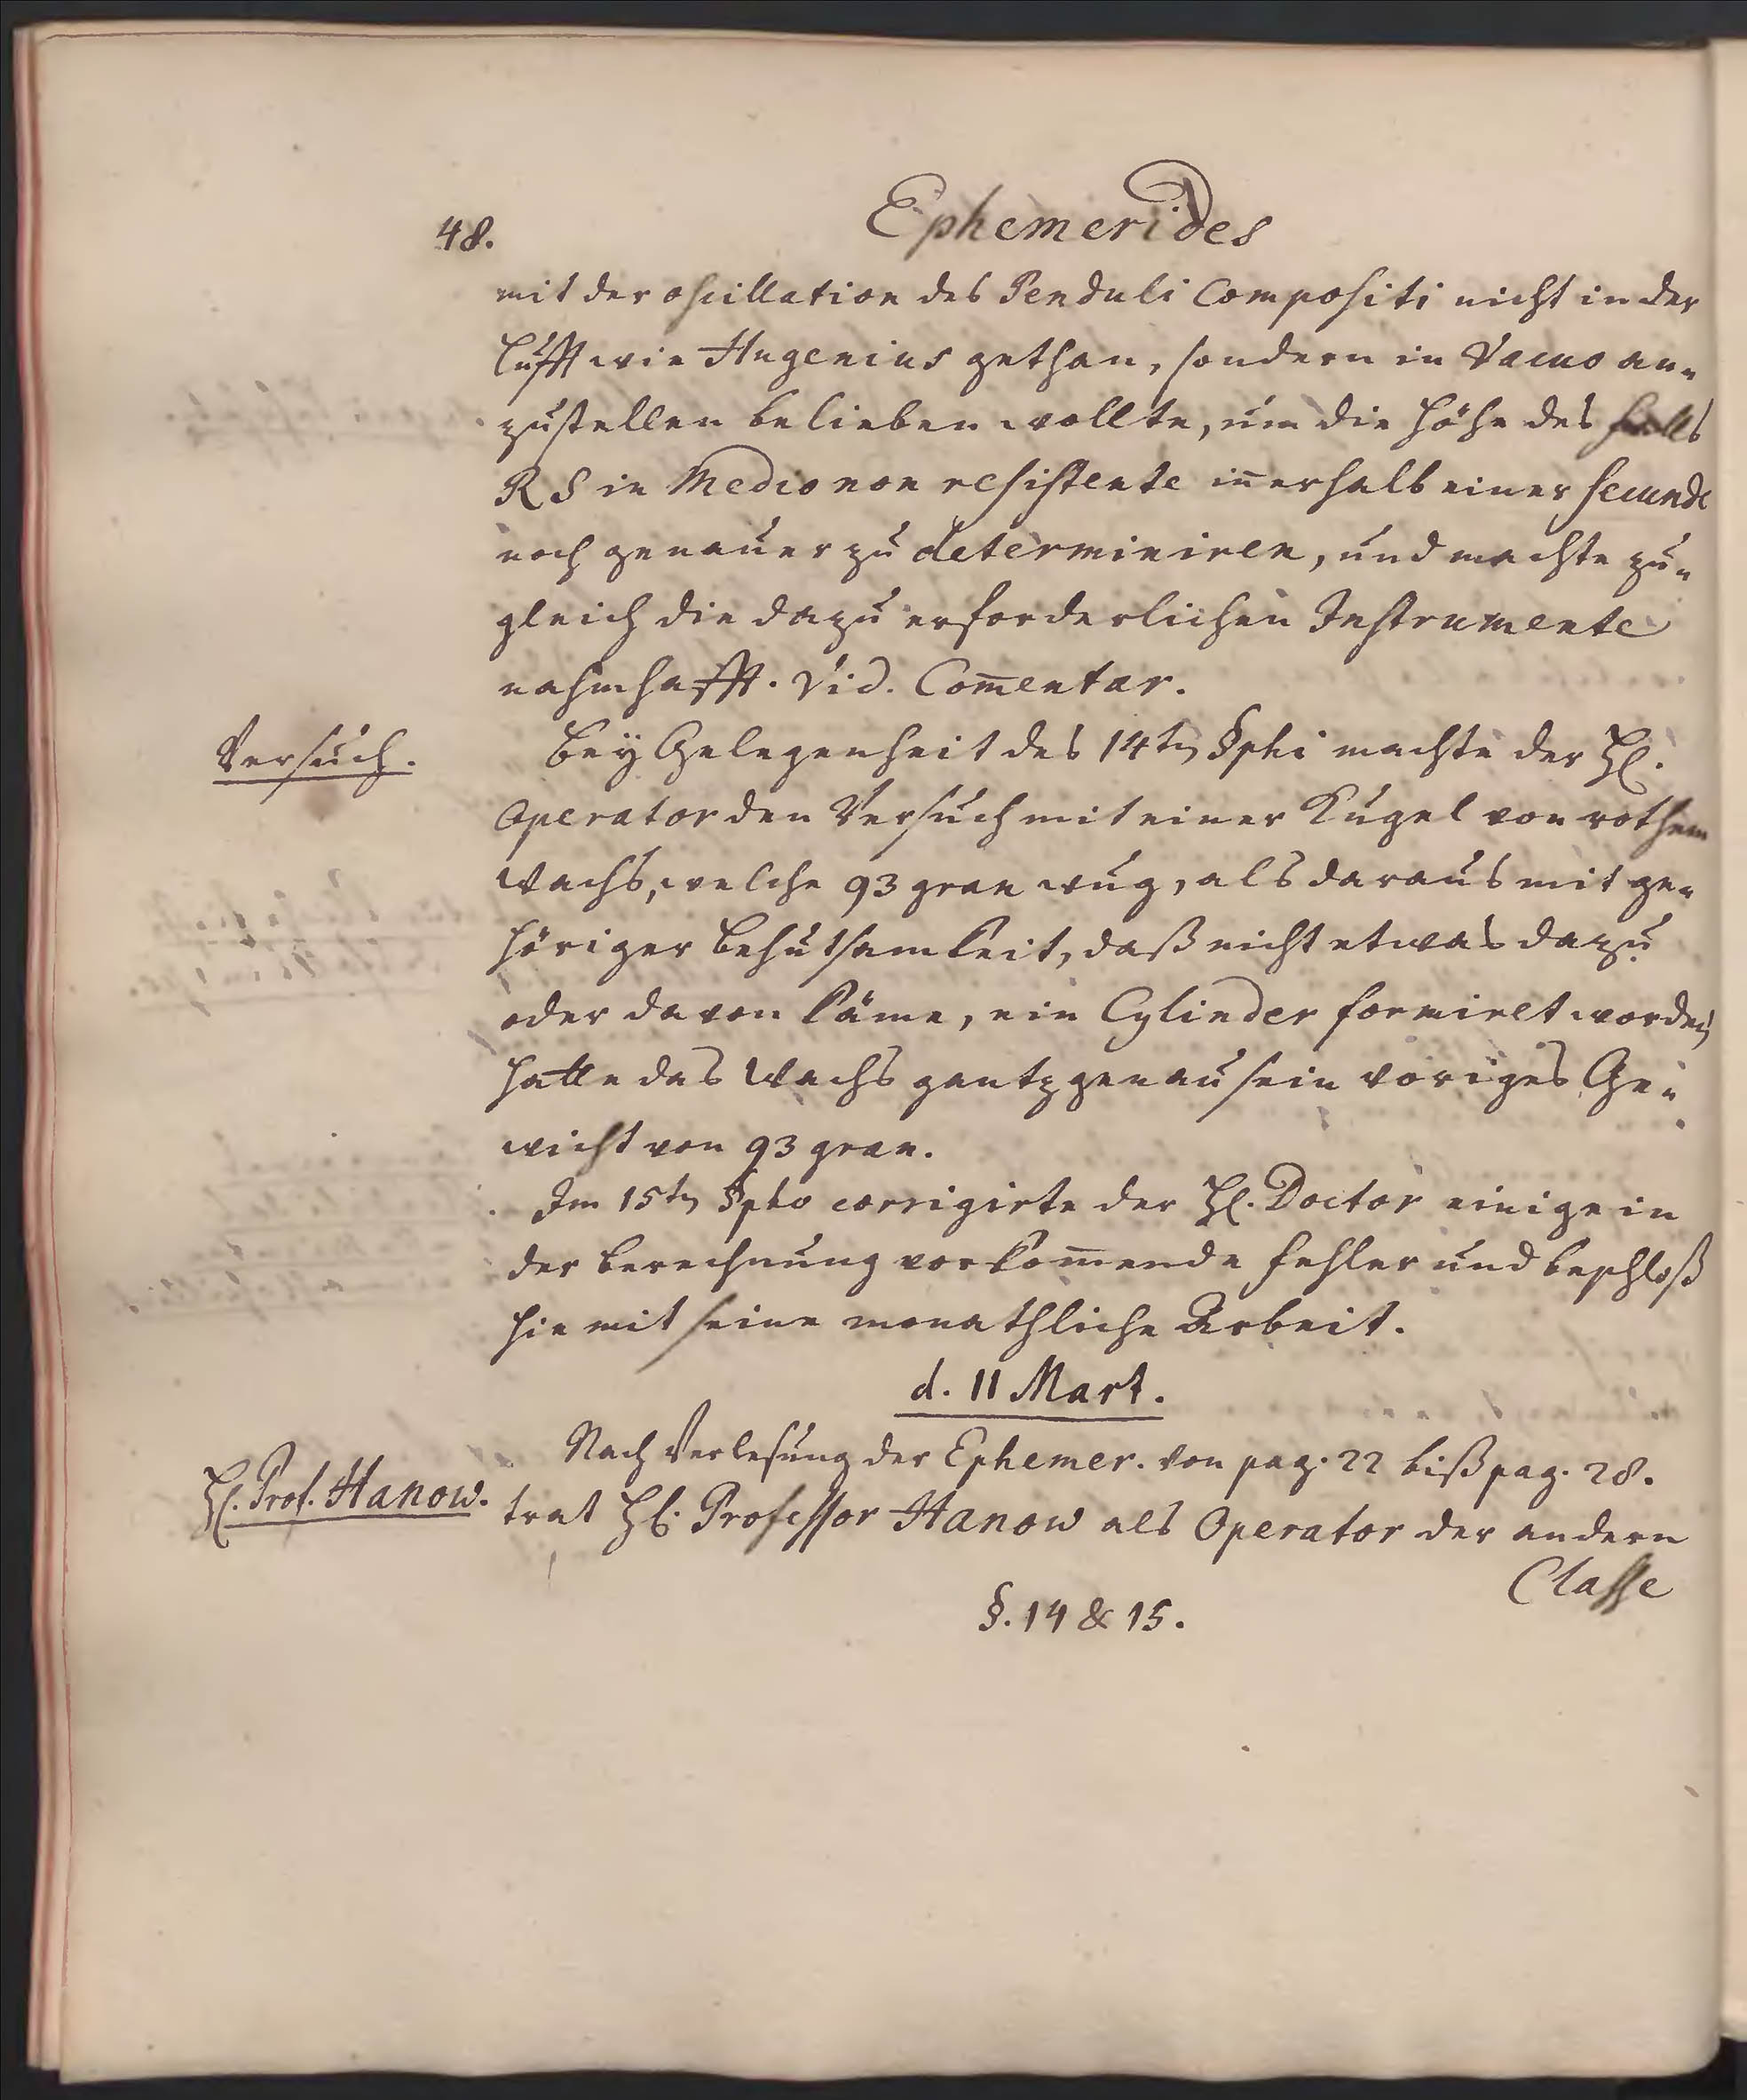 48.
Ephemerides
mit der oscillation des Penduli Compositi nicht in der
Lufft wie Hugenius gethan, sondern in Vacuo an-
zustellen belieben wollte, um die Höhe des Falls
R S in Medio non resistente in̄erhalb einer Secunde
noch genauer zu determiniren, und machte zu-
gleich die dazu erforderlichen Instrumente
nahmhafft. Vid. Com̄entar.
Versuch.
Bey Gelegenheit des 14ten §phi machte der H.
Operator den Versuch mit einer Kugel von rothem
Wachs, welche 93 gran wug, als daraus mit ge-
höriger Behutsamkeit, daß nicht etwas dazu
oder davon käme, ein Cylinder formiret worden
hatte das Wachs gantz genau sein voriges Ge-
wicht von 93 gran.
Im 15ten §pho corrigirte der H. Doctor einige in
der Berechnung vorkom̄ende Fehler und beschloß
hiemit seine monathliche Arbeit.
d. 11 Mart.
Nach Verlesung der Ephemer. von pag. 22 biß pag. 28.
H. Prof. Hanow.
trat H. Professor Hanow als Operator der andern
Classe
§. 14 & 15.